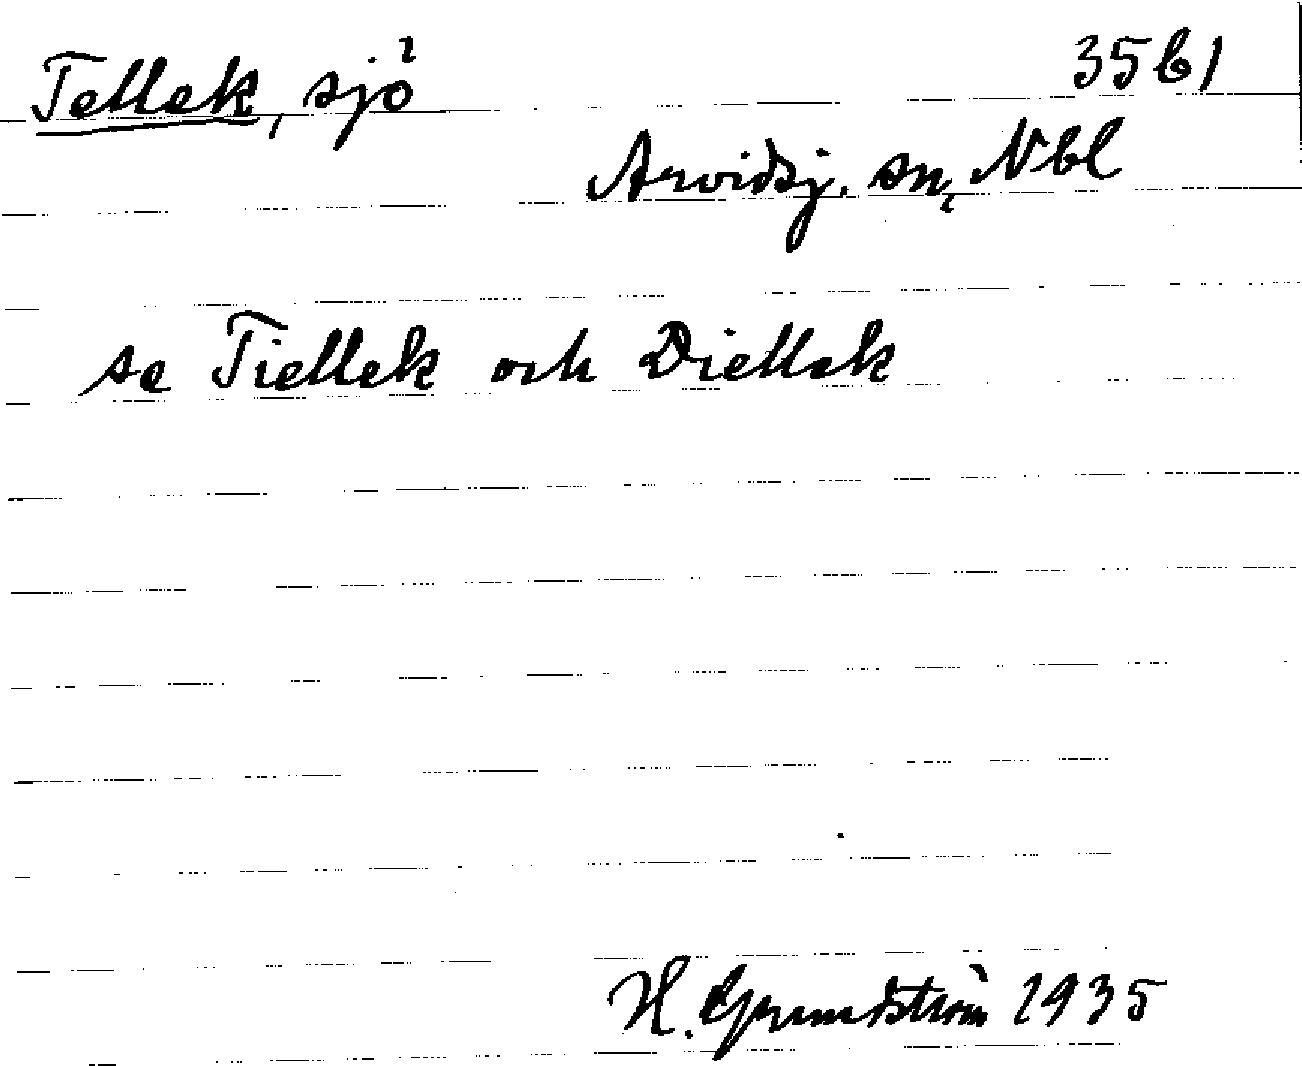 Tellek, sjö 35b1
Arvidsj. sn, Nbl
se Tiellek och Diellek
H. Grundström 1935